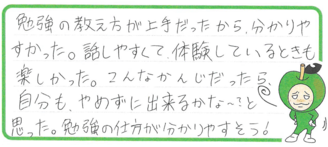 勉強の教え方が上手だったから、分かりや
すかった。話しやすくて、体験しているときも
楽しかった。こんなかんじだったら
自分も、やめずに出来るかな~?と
思った。勉強の仕方が分かりやすそう!